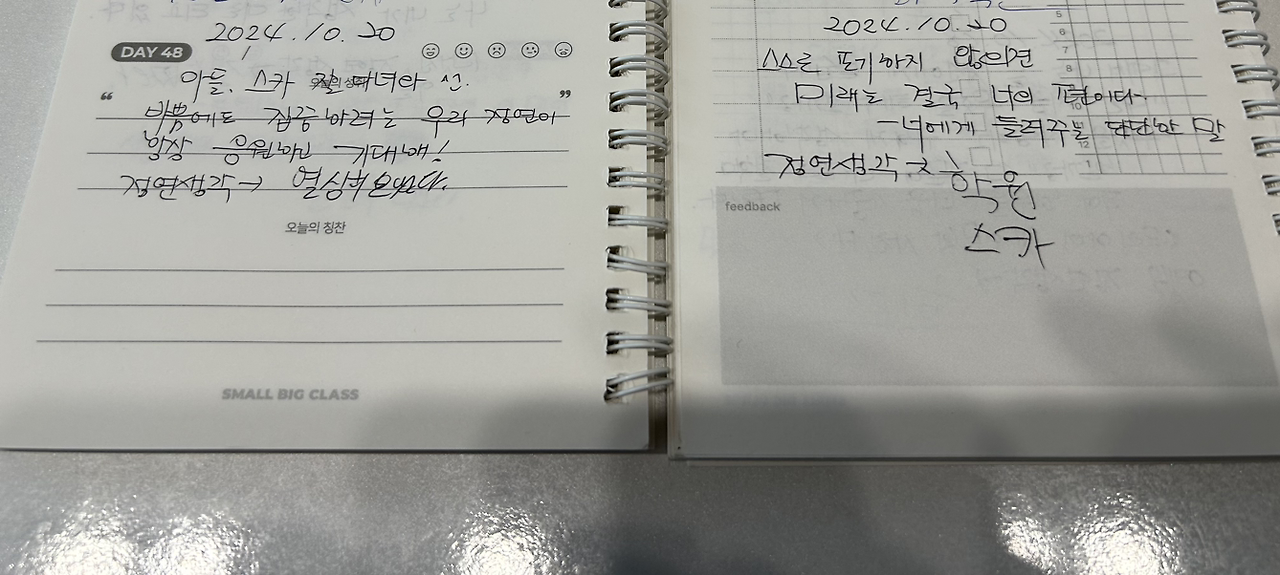 2024.10.20
DAY 48
아들. 스카 잘 다녀와 섰.
“ 바쁨에도 집중하려는 우리 정연이 ”
항상 응원하고 기대해!
정연생각→ 열심히
오늘의 칭찬
SMALL BIG CLASS
2024.10.20
스스로 포기하지 않으면
미래는 결국 너의 편이다.
-너에게 들려주는 단단한 말
정연생각→
학원
스카
feedback
5
6
7
8
10
12
1